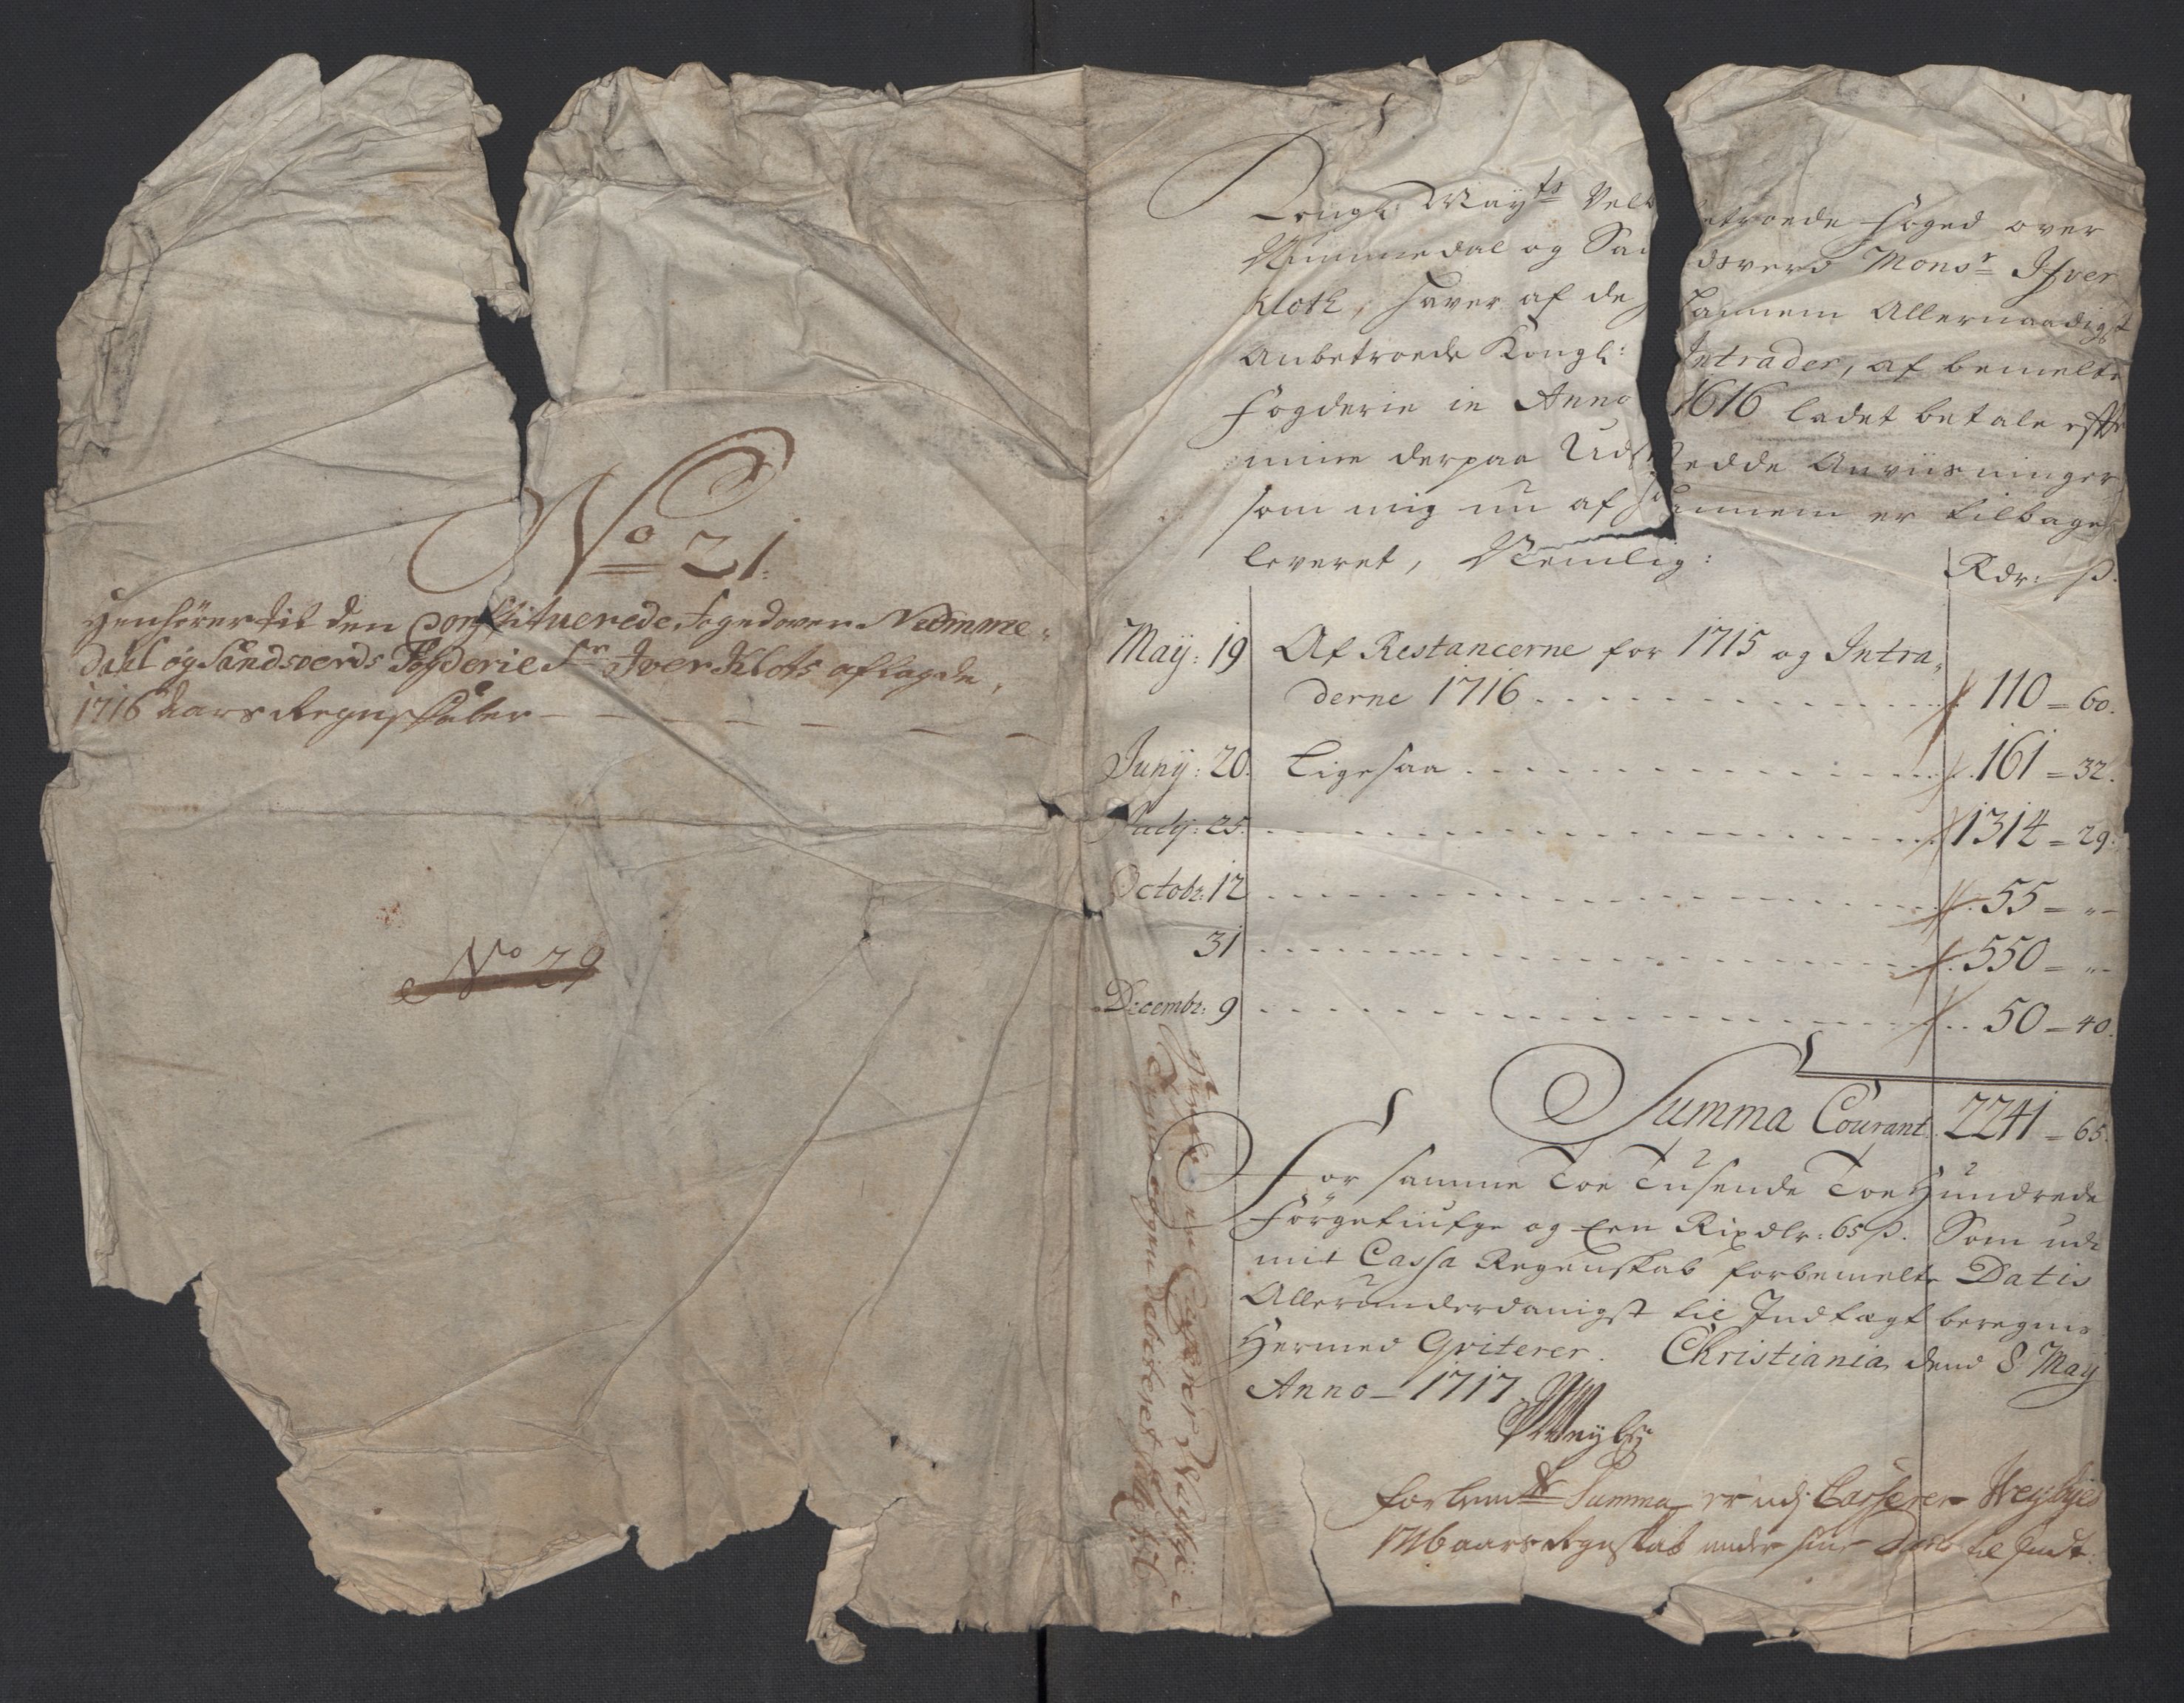 No 21.
Henhører til den Constituerede Foged over Numme-
dahl og Sandsverds Fogderie Sr Iver Klots aflagde
1716 Aars Regnskaber
No 29
Kongl: Mayts Velbetroede Foged over
Nummedal og Sandsverd Monsr Ifver
Kloth, haver af de hannem Allernaadigst
Anbetroede Kongl: Intrader, af bemelte
Fogderie in Anno 1616 ladet betale effter
mine derpaa Udstædde Anviisninger,
som mig nu af hannem er tilbage
leveret, Nemlig:
Rdr: ß.
Maij: 19 Af Restancerne for 1715 og Intra-
derne 1716 110 = 60.
Junij: 20. Ligesaa 161 = 32.
July: 25. 1314 = 29.
Octobr: 12 55 = "
31 550 = "
Decembr: 9 50 = 40.
Summa Courant 2241 = 65.
For samme Toe Tusende Toe Hundrede
Førgetiufge og Een Rixdlr: 65 ß. Som udi
mit Cassa Regenskab forbemelte Datis
Allerunderdanigst til Indtægt beregnis
Hermed Qviterer. Christiania dend 8 May
Anno 1717
Weybye
forbemte Summa er udj Casserer Weybyes
1716 aars Regnskab under sine Dato til Indt: